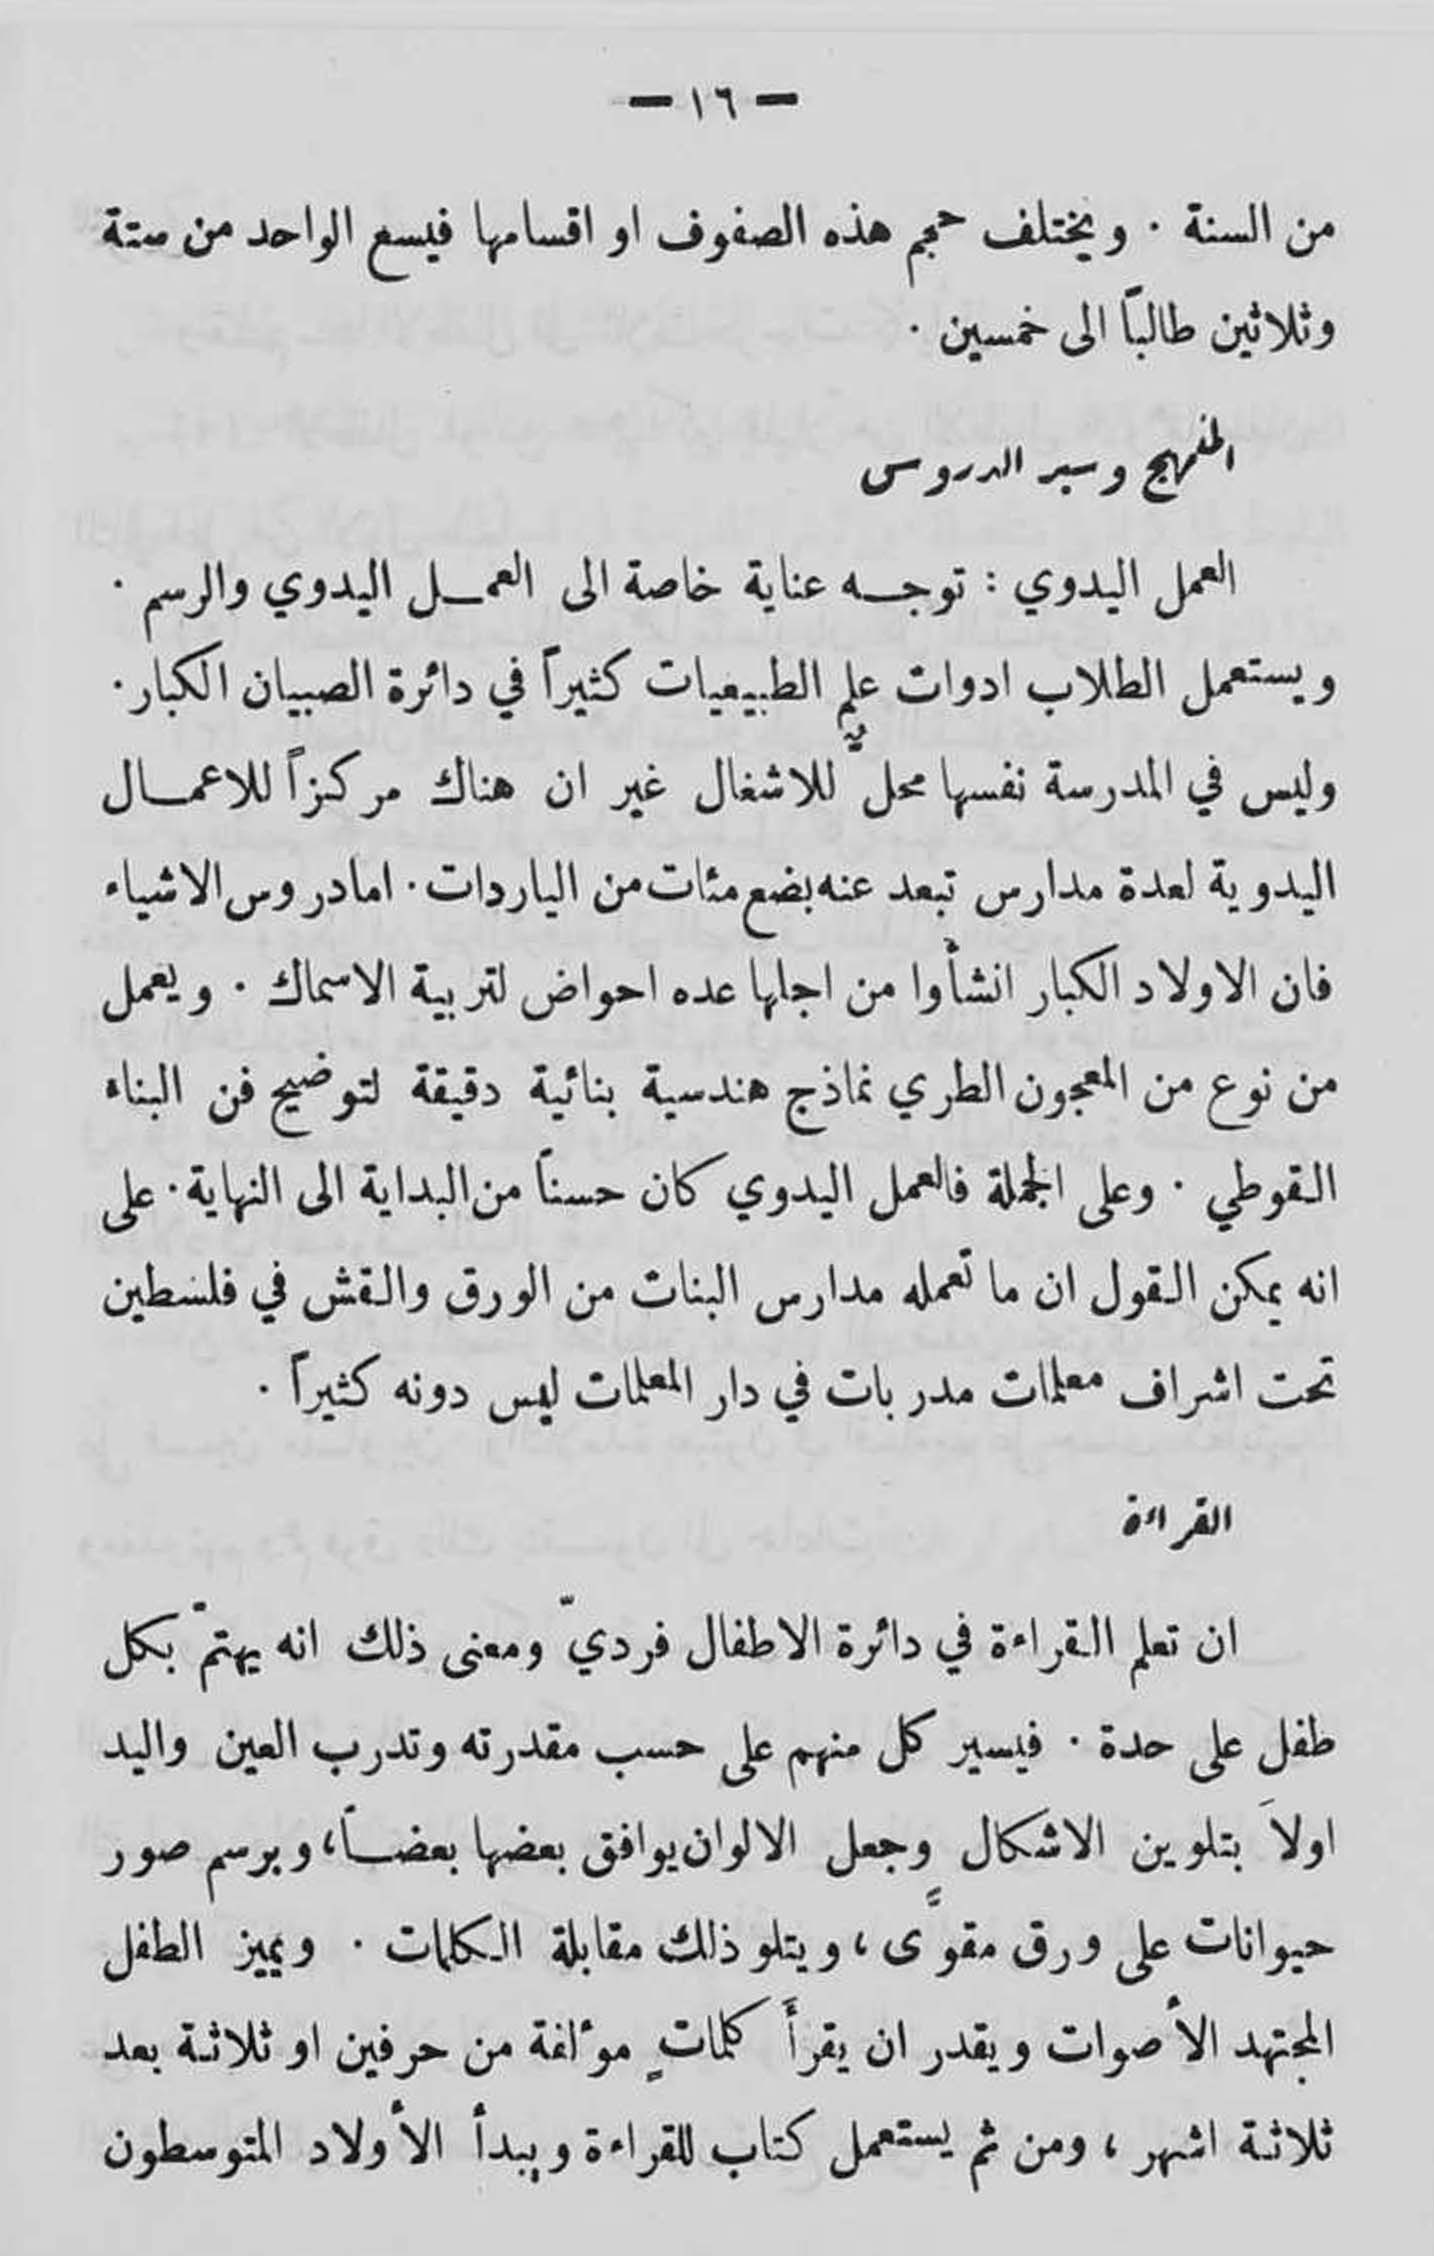 — ١٦ —
من السنة . ويختلف حجم هذه الصفوف او اقسامها فيسع الواحد من ستة
وثلاثين طالباً الى خمسين .
المنهج وسير الدروس
العمل اليدوي : توجـــه عناية خاصة الى العمـــل اليدوي والرسم .
ويستعمل الطلاب ادوات علم الطبيعيات كثيراً في دائرة الصبيان الكبار .
وليس في المدرسة نفسها محلٌّ للاشغال غير ان هناك مركزاً للاعمـــال
اليدوية لعدة مدارس تبعد عنه بضع مئات من الياردات . اما دروس الاشياء
فان الاولاد الكبار انشأوا من اجلها عده احواض لتربية الاسماك . ويعمل
من نوع من المعجون الطري نماذج هندسية بنائية دقيقة لتوضيح فن البناء
القوطي . وعلى الجملة فالعمل اليدوي كان حسناً من البداية الى النهاية . على
انه يمكن القول ان ما تعمله مدارس البنات من الورق والقش في فلسطين
تحت اشراف معلمات مدربات في دار المعلمات ليس دونه كثيراً .
القراءة
ان تعلم القراءة في دائرة الاطفال فرديّ ومعنى ذلك انه يهتمّ بكل
طفلٍ على حدة . فيسير كل منهم على حسب مقدرته وتدرب العين واليد
اولاً بتلوين الاشكال وجعل الالوان يوافق بعضها بعضـــاً ، وبرسم صور
حيوانات على ورق مقوًّى ، ويتلو ذلك مقابلة الكلمات . ويميز الطفل
المجتهد الأصوات ويقدر ان يقرأَ كلماتٍ مؤلفة من حرفين او ثلاثة بعد
ثلاثة اشهر ، ومن ثم يستعمل كتاب للقراءة ويبدأ الأولاد المتوسطون